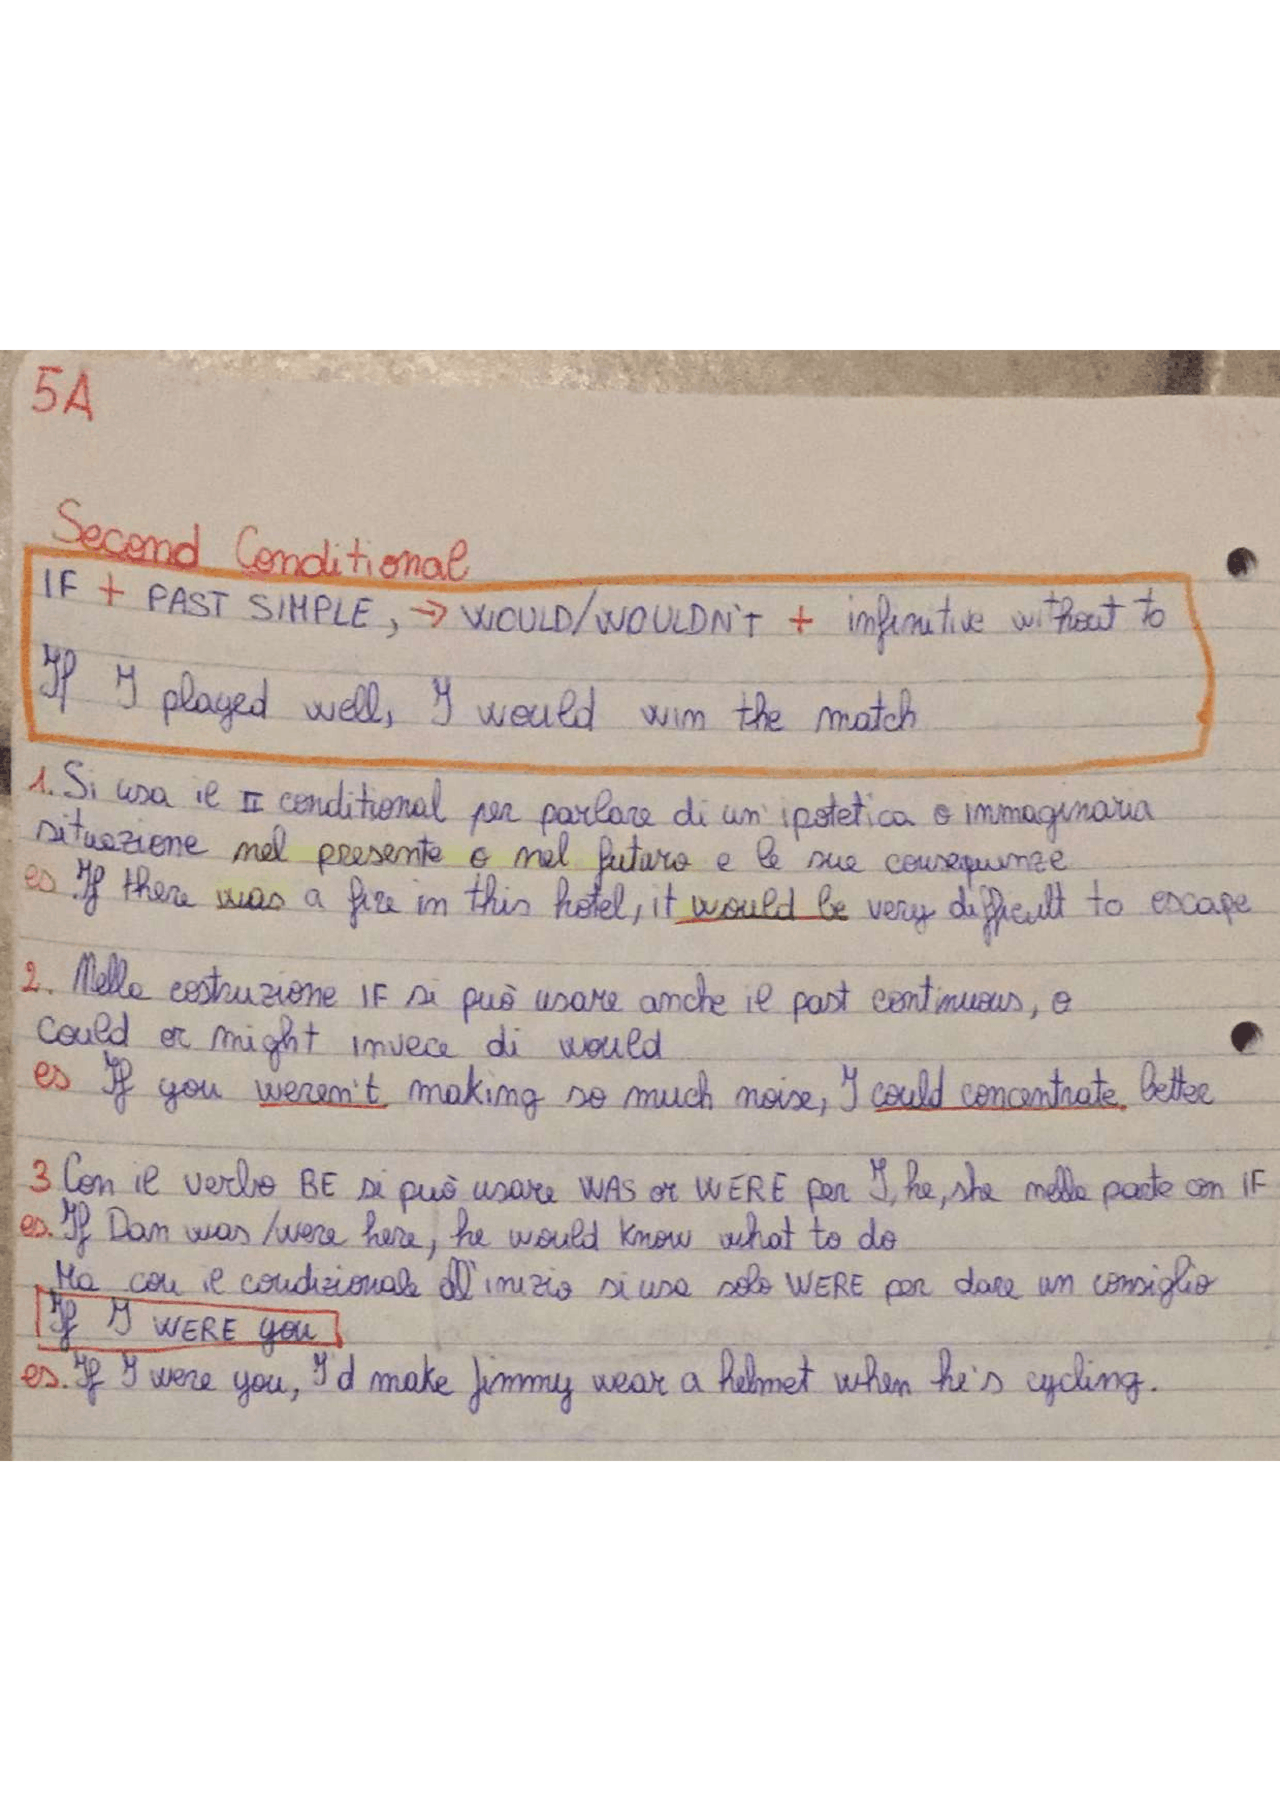 5A
Second Conditional
IF + PAST SIMPLE, → WOULD/WOULDN'T + infinitive without to
If I played well, I would win the match
1. Si usa il II conditional per parlare di un'ipotetica o immaginaria
situazione nel presente o nel futuro e le sue conseguenze
es If there was a fire in this hotel, it would be very difficult to escape
2. Nella costruzione IF si può usare anche il past continuous, o
could or might invece di would
es If you weren't making so much noise, I could concentrate better
3 Con il verbo BE si può usare WAS or WERE per I, he, she nella parte con IF
es. If Dan was/were here, he would know what to do
Ma con il condizionale all'inizio si usa solo WERE per dare un consiglio
If I WERE you
es. If I were you, I'd make Jimmy wear a helmet when he's cycling.